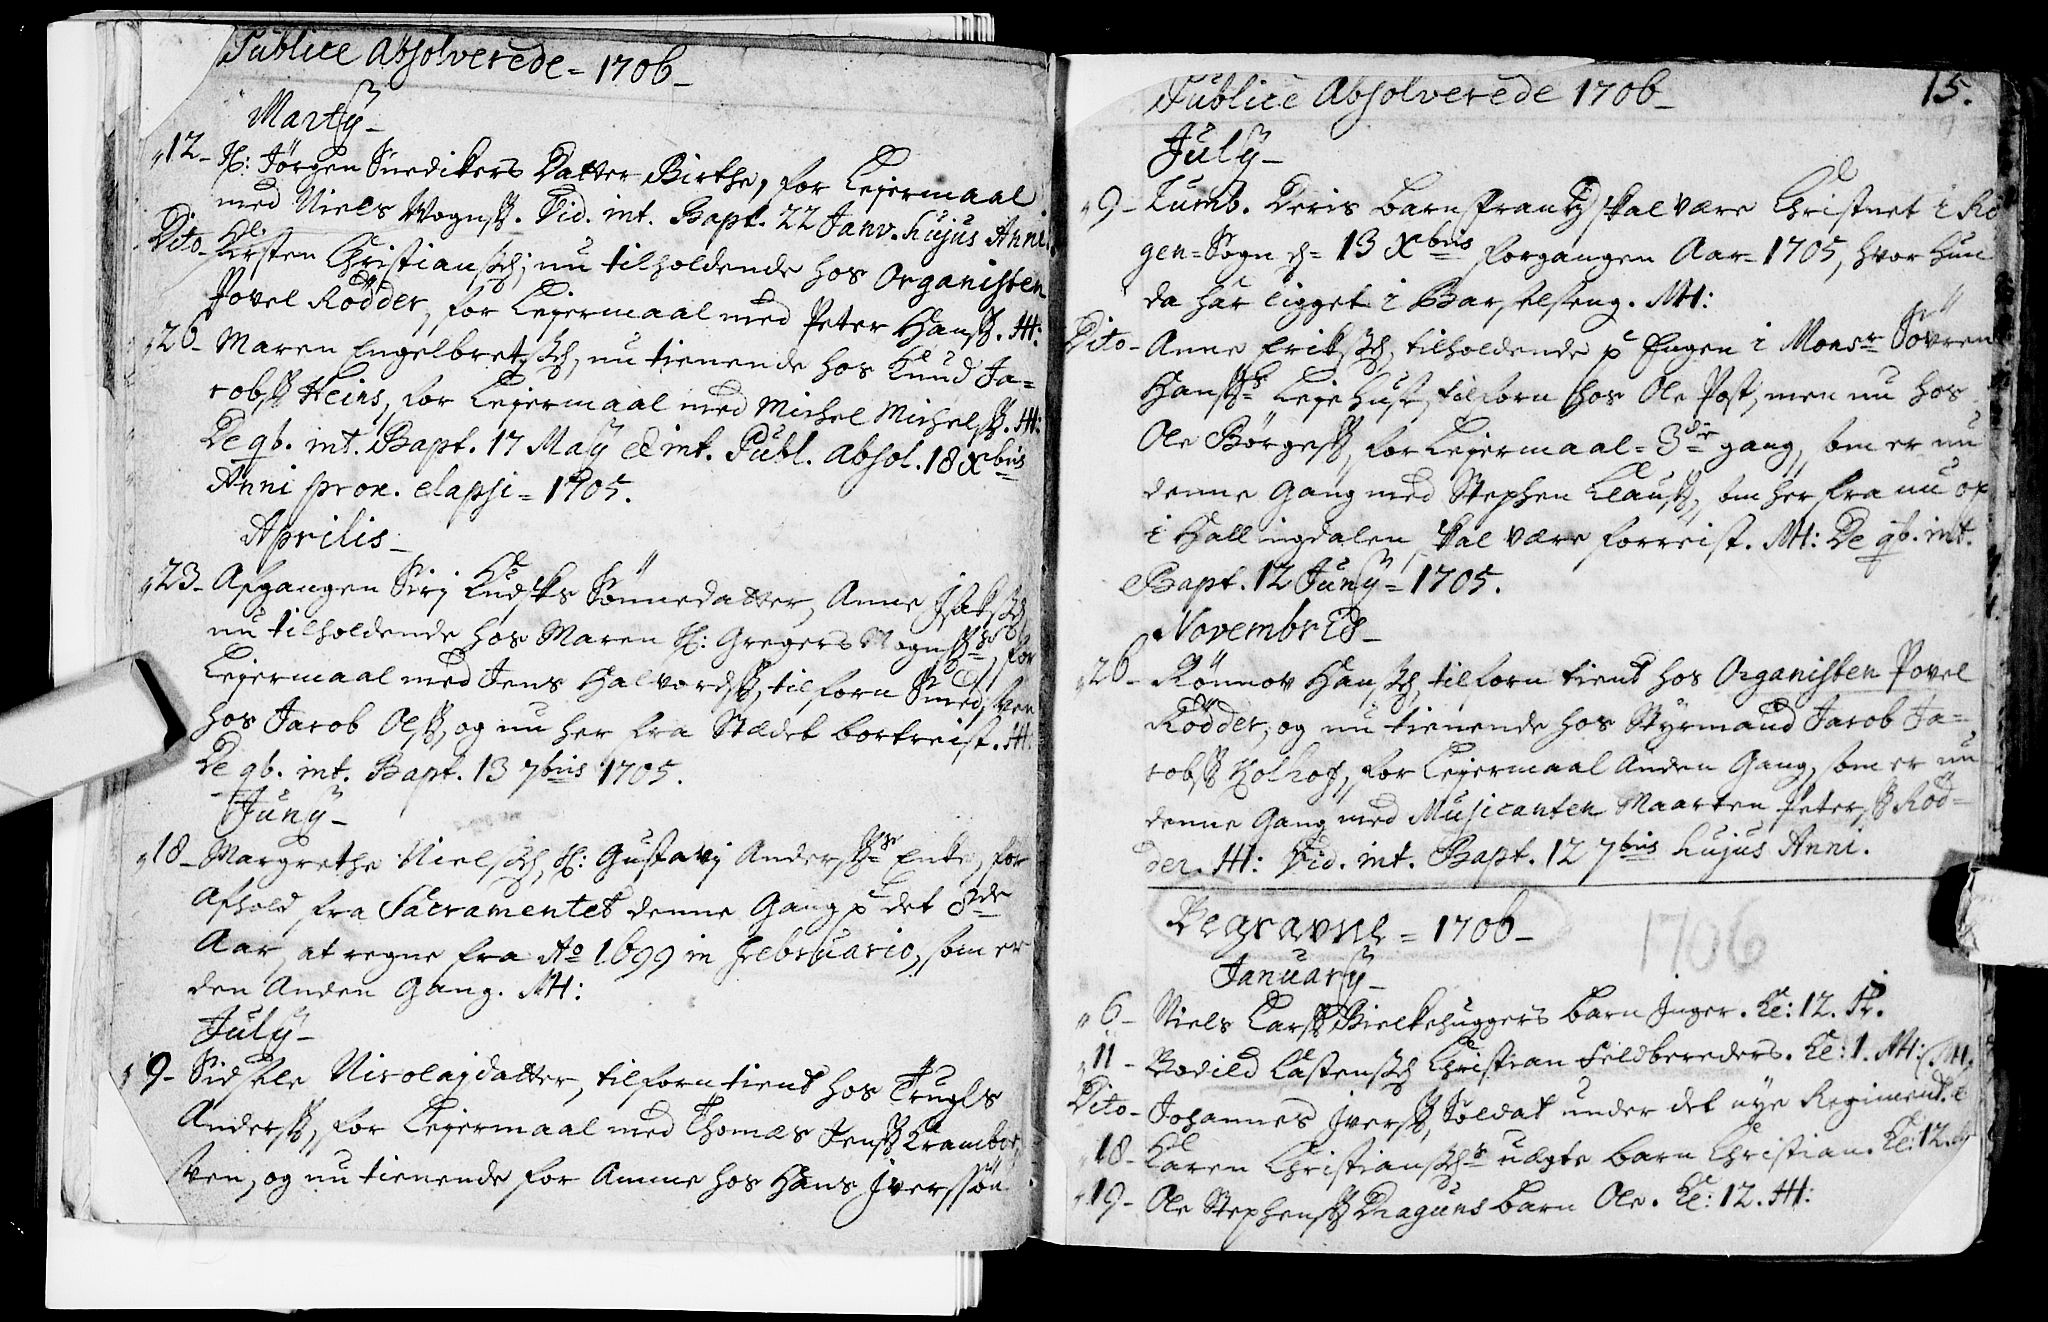 Publice Absolverede = 1706
Martÿ
12 Sl: Jörgen Snedikers Datter Birthe, for Lejermaal
med Niels Mognss. Vid. int. Bapt. 22 Janv. hujus Anni.
Dito Kirsten Christianssd; nu tilholdende hos Organisten
Povel Rödder, for Lejermaal med Peter Hanss. M:
26 Maren Engelbretzsd, nu tienende hos Knud Ja=
cobss Heins, for Lejermaal med Michel Michelss. M:
De qb. int. Bapt. 17 Maÿ et int. Publ. Absol. 18 Xbris
Anni prox. elapsi = 1705.
Aprilis
23 Afgangen Sirj Sönnedatter, Anne
nu tilholdende hos Maren Sl: Gregers Mognss for
Lejermaal med Jens Halvordss, tilforn
hos Jacob Olss, og nu her fra Stædet bortreist. M:
De qb. int. Bapt. 13 7bris 1705.
Junÿ
18 Margrethe Nielssd, Sl: Gustavj Anderss Enke, for
Afhold fra Sacramentet denne Gang p det 8de
Aar, at regne fra Ao 1699 in Februario, som er
den Anden Gang. M:
Julÿ
9 Sidsele Nicolajdatter, tilforn tient hos Trugls
Anderss, for Lejermaal med Thomæs Jenss Krambod
sven, og nu tienende for Amme hos Hans Jverssön
15.
Publice Absolverede 1706
Julÿ
9 Cumb. Deris barn skal være Christnet i Ro
gen=Sogn d= 13 Xbris forgangen Aar= 1705, hvor hun
da har ligget i Barselseng. M:
Dito Anne Erikssd, tilholdende p Engen i Monsr Sövren
Hanss Leje Huus, tilforn hos Ole Post, men nu hos
Ole Börgess, for Lejermaal= 3die gang, som er nu
denne Gang med Stephen Clauss, som her fra nu op
i Hallingdalen skal være forreist. M: De qb. int.
Bapt. 12 Junÿ= 1705.
Novembris
26 Rönnov Hanssd, tilforn tient hos Organisten Povel
Rödder, og nu tienende hos Styrmand Jacob Ja=
cobss Holhof, for Lejermaal Anden Gang, som er nu
denne Gang med Musicanten Maarten Peterss Röd=
der. M: Vid. int. Bapt. 12 7bris hujus Anni.
Begravne = 1706
1706
Januarÿ
6 Niels Larss Bielkehuggers barn Inger. Kl: 12. Fr.
11 Bodild Castenssd Christian Feldbereders. Kl: 1. M:
Dito Johannes Iverss, Soldat under det nye Regiment.
18 Karen Christianssds uægte barn Christian. Kl: 12.
19 Ole Stephenss Draguns barn Ole. Kl: 12. M: